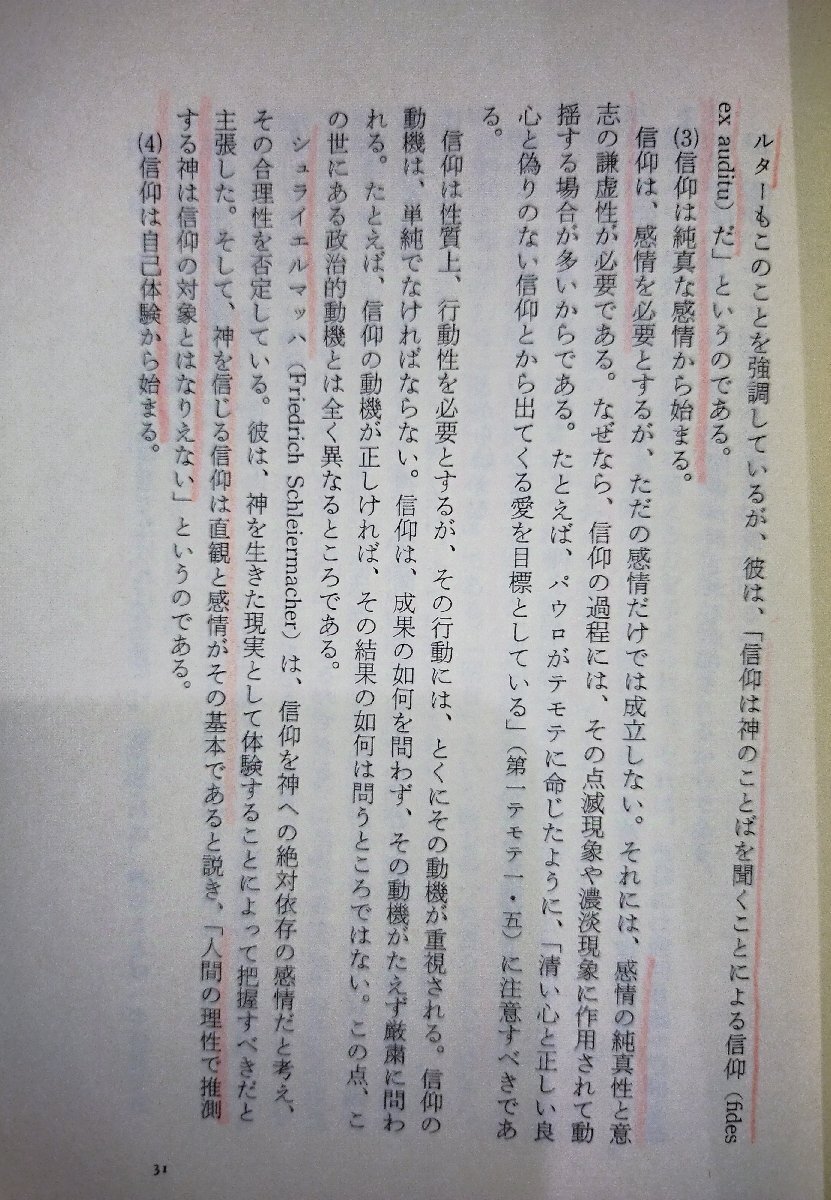 ルターもこのことを強調しているが、彼は、「信仰は神のことばを聞くことによる信仰（fides
ex auditu）だ」というのである。
(3)信仰は純真な感情から始まる。
信仰は、感情を必要とするが、ただの感情だけでは成立しない。それには、感情の純真性と意
志の謙虚性が必要である。なぜなら、信仰の過程には、その点滅現象や濃淡現象に作用されて動
揺する場合が多いからである。たとえば、パウロがテモテに命じたように、「清い心と正しい良
心と偽りのない信仰とから出てくる愛を目標としている」（第一テモテ一・五）に注意すべきであ
る。
信仰は性質上、行動性を必要とするが、その行動には、とくにその動機が重視される。信仰の
動機は、単純でなければならない。信仰は、成果の如何を問わず、その動機がたえず厳粛に問わ
れる。たとえば、信仰の動機が正しければ、その結果の如何は問うところではない。この点、こ
の世にある政治的動機とは全く異なるところである。
シュライエルマッハ（Friedrich Schleiermacher）は、信仰を神への絶対依存の感情だと考え、
その合理性を否定している。彼は、神を生きた現実として体験することによって把握すべきだと
主張した。そして、神を信じる信仰は直観と感情がその基本であると説き、「人間の理性で推測
する神は信仰の対象とはなりえない」というのである。
(4)信仰は自己体験から始まる。
31